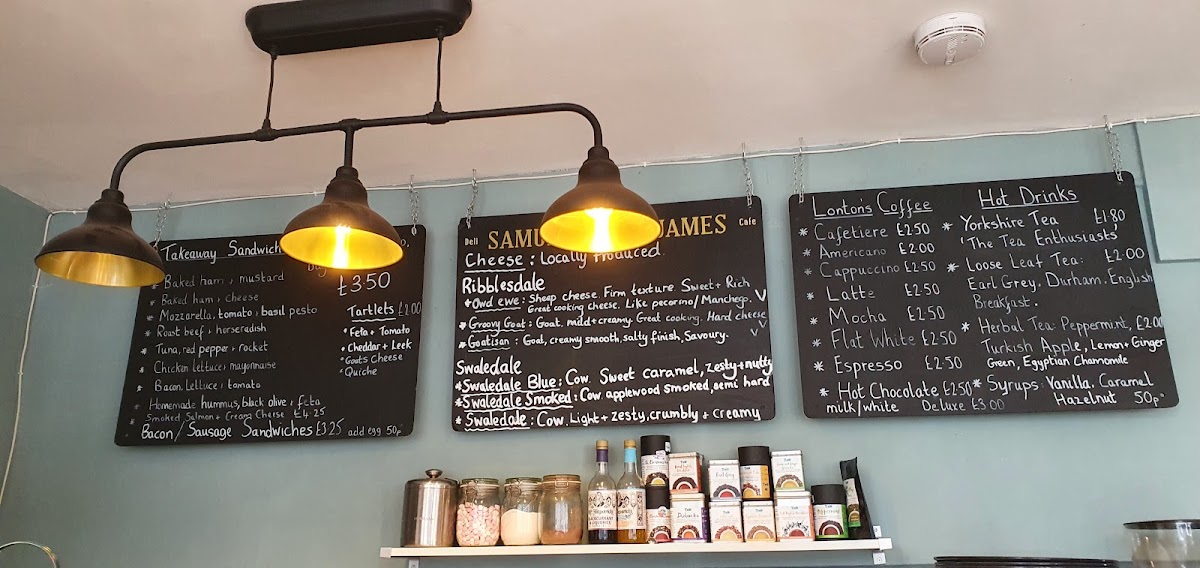 Takeaway Sandwich
£3.50
Baked ham + mustard
* Baked ham + cheese
* Mozzarella, tomato + basil pesto
* Roast beef + horseradish
* Tuna, red pepper + rocket
* Chicken lettuce + mayonnaise
* Bacon, Lettuce + tomato
* Homemade hummus, black olive + feta
* Smoked Salmon + Cream Cheese £4.25
Bacon/Sausage Sandwiches £3.25 add egg 50p
Tartlets £2.00
* Feta + Tomato
* Cheddar + Leek
* Goats Cheese
* Quiche
Deli SAMU JAMES Cafe
Cheese: Locally Produced.
Ribblesdale
* Owd ewe: Sheep cheese. Firm texture. Sweet + Rich
Great cooking cheese. Like pecorino/Manchego. V
* Groovy Goat: Goat, mild + creamy. Great cooking. Hard cheese V
* Goatisan: Goat, creamy smooth, salty finish, Savoury. V
Swaledale
* Swaledale Blue: Cow. Sweet caramel, zesty + nutty
* Swaledale Smoked: Cow. applewood smoked, semi hard
* Swaledale: Cow. Light + zesty, crumbly + creamy
Lonton's Coffee
* Cafetiere £2.50
* Americano £2.00
* Cappuccino £2.50
* Latte £2.50
* Mocha £2.50
* Flat White £2.50
* Espresso £2.50
* Hot Chocolate £2.50
milk/white Deluxe £3.00
Hot Drinks
* Yorkshire Tea £1.80
'The Tea Enthusiasts'
* Loose Leaf Tea: £2.00
Earl Grey, Durham, English
Breakfast.
* Herbal Tea: Peppermint, £2.00
Turkish Apple, Lemon + Ginger
Green, Egyptian Chamomile
* Syrups: Vanilla, Caramel
Hazelnut 50p